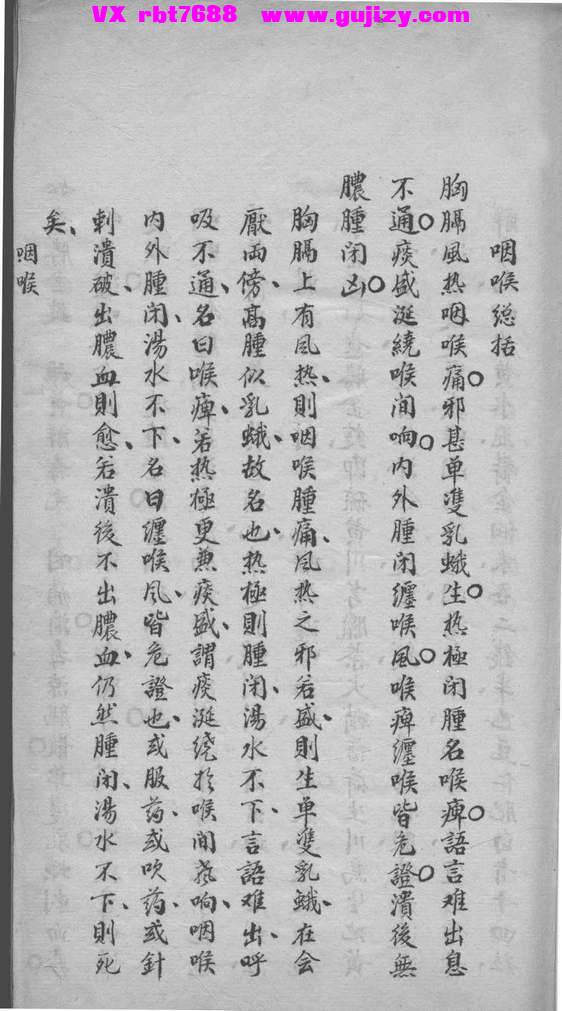 VX rbt7688 www.gujizy.com
咽喉總括
胸膈風热咽喉痛。邪甚单雙乳蛾生。热極闭腫名喉痺。語言难出息
不通。痰盛涎繞喉间响。内外腫闭纏喉風。喉痺纏喉皆危證。潰後無
膿腫闭凶。
胸膈上有風热、則咽喉腫痛、風热之邪若盛、則生单雙乳蛾、在会
厭両傍、高腫似乳蛾、故名也、热極則腫闭、湯水不下、言語难出、呼
吸不通、名曰喉痺、若热極更兼痰盛、謂痰涎绕於喉间、声响、咽喉
内外腫闭、湯水不下、名曰纏喉風、皆危證也、或服药、或吹药、或針
刺潰破出膿血則愈、若潰後不出膿血、仍然腫闭、湯水不下、則死
矣、
咽喉